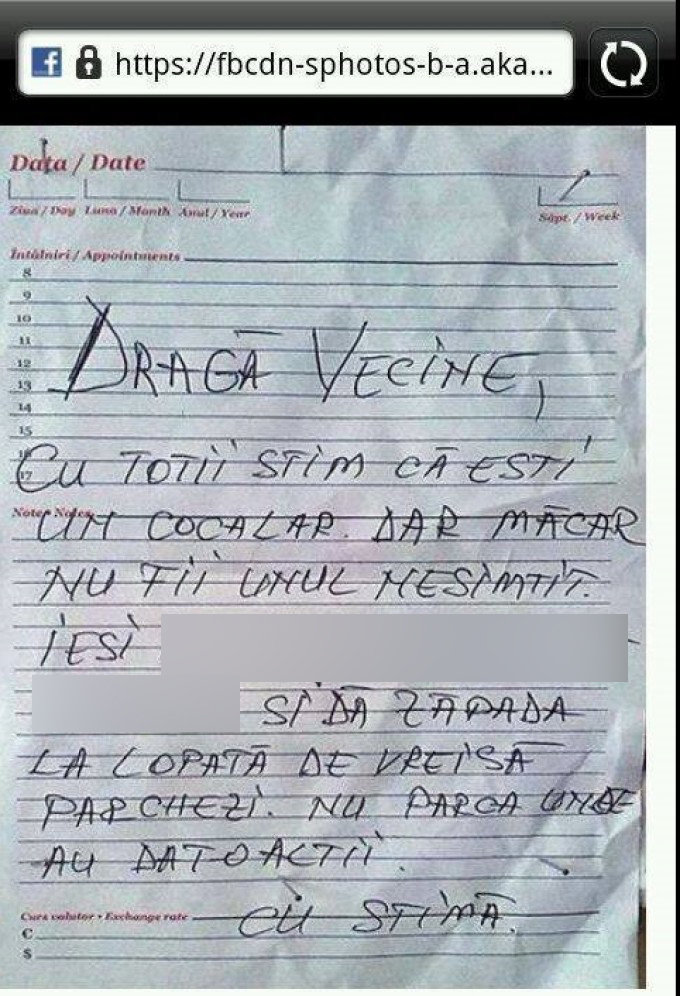 https://fbcdn-sphotos-b-a.aka...
Data / Date
Ziua / Day Luna / Month Anul / Year
Săpt. / Week
Întâlniri / Appointments
8
9
10
11
12
13
14
15
16
17
DRAGĂ VECINE,
CU TOTII STIM CĂ ESTI
Note/ Notes
UN COCALAR. DAR MĂCAR
NU FII UNUL NESIMTIT.
IESI
SI DĂ ZĂPADA
LA LOPATĂ DE VREI SĂ
PARCHEZI. NU PARCA UNDE
AU DAT-O ALTII.
CU STIMĂ.
Curs valutar • Exchange rate
€
$